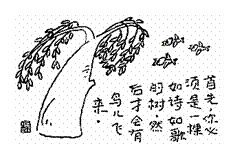 首先，你必
须是一棵
如诗如歌
的树，然
后才会有
鸟儿飞
来。